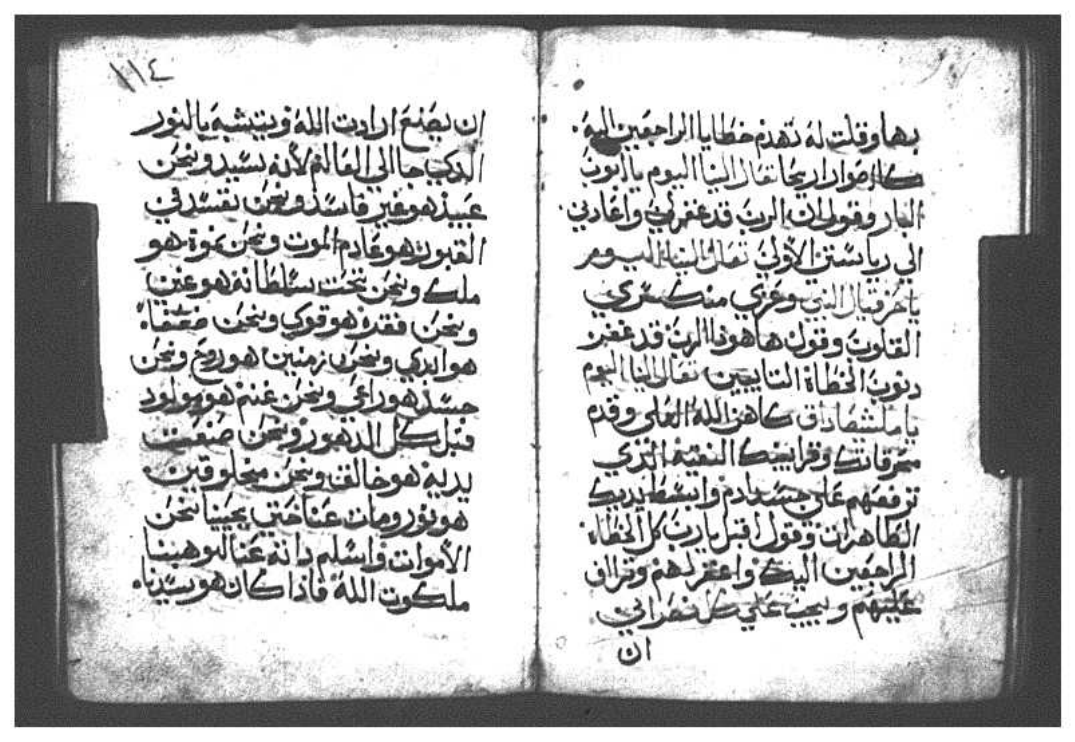 بها وقلت له تهدم خطايا الراجعين اليه.
كاصوار اريحا تعال الينا اليوم يا ايوب
البار وقول ان الرب قد غفر لي واعادني
الي رياستي الاولي تعال الينا اليوم
يا حزقيال النبي وعزي منكسري
القلوب وقول هاهوذا الرب قد غفر
دنوب الخطاة التايبين تعال الينا اليوم
يا ملشيصاداق كاهن الله العلي وقدم
محرقاتك وقرابينك النقية الذي
ترفعهم علي جسد ادم وابسط يديك
الطاهران وقول اقبل يا رب كل الخطاه
الراجعين اليك واغفر لهم وتراف
عليهم ويجب علي كل نصراني
ان
١١٤
ان يصنع ارادت الله ويتشبه بالنور
الدي جا الي العالم لانه سيد ونحن
عبيد هو غير فاسد ونحن نفسد في
القبور هو عادم الموت ونحن نموت هو
ملك ونحن تحت سلطانه هو غني
ونحن فقده هو قوي ونحن ضعفاء
هو ابدي ونحن زمنيين هو روح ونحن
جسد هو راعي ونحن غنم هو مولود
قبل كل الدهور ونحن صنعت
يديه هو خالق ونحن مخلوقين
هو نور ومات عنا حتي يحيينا نحن
الأموات واسلم داته عنا ليوهبنا
ملكوت الله فاذا كان هو سيدنا